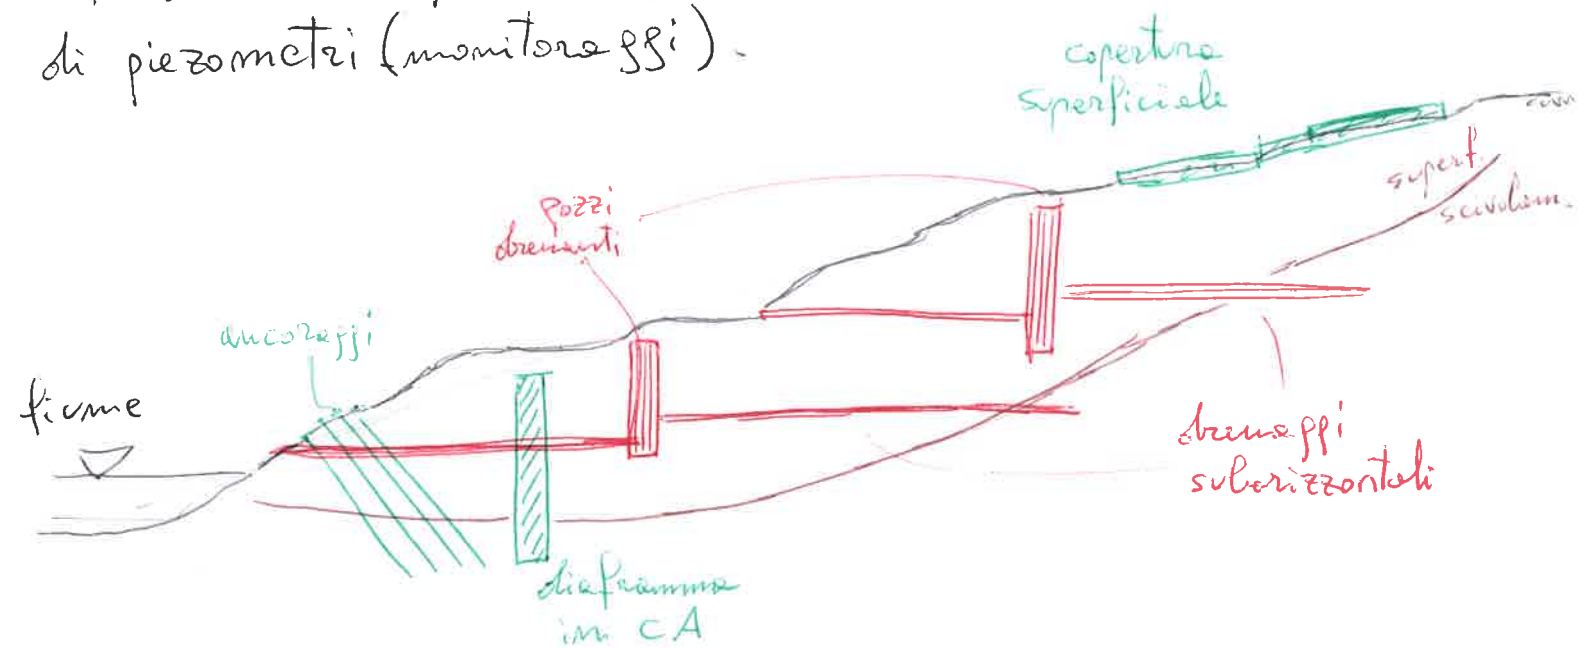 di piezometri (monitoraggi).
copertura
superficiale
superf.
scivolam.
pozzi
drenanti
ancoraggi
fiume
drenaggi
suborizzontali
diaframma
in CA